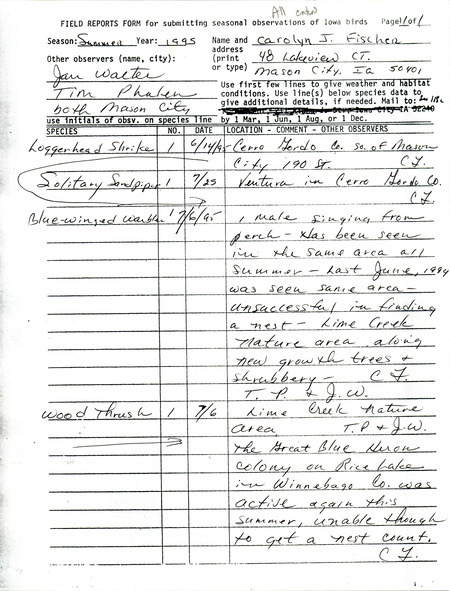 All entered
FIELD REPORTS FORM for submitting seasonal observations of Iowa birds Page 1/of 1
Season: Summer Year: 1995 Name and address (print or type) Carolyn J. Fischer
48 Lakeview CT.
Mason City, Ia 50401
Other observers (name, city):
Jan Walter
Tim Phalen
both Mason City
Use first few lines to give weather and habitat conditions. Use line(s) below species data to give additional details, if needed. Mail to:
by 1 Mar, 1 Jun, 1 Aug, or 1 Dec.
use initials of obsv. on species line
SPECIES NO. DATE LOCATION - COMMENT - OTHER OBSERVERS
Loggerhead Shrike 1 6/14/95 Cerro Gordo Co. so. of Mason
City 190 St. CF
Solitary Sandpiper 1 7/25 Ventura in Cerro Gordo Co.
CF
Blue-winged Warbler 1 7/6/95 1 male singing from
perch - Has been seen
in the same area all
Summer - Last June, 1994
was seen same area -
unsuclessful in finding
a nest - Lime Creek
Nature area along
new growth trees &
shrubbery - CF
T. P. & J. W.
Wood Thrush 1 7/6 Lime Creek Nature
area T.P & J.W.
The Great Blue Heron
colony on Rice Lake
in Winnebago Co. was
active again this
summer, unable though
to get a nest count.
CF